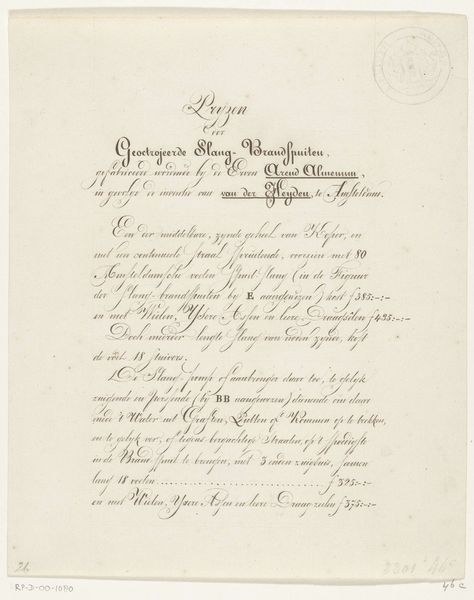 Pryzen
voor
Geoctrojeerde Slang-Brandspuiten,
gefabriceerd wordende by de Erven Arend Almenum,
in gevolge de inventie van van der Heyden, te Amsteldam.
Een der middelbare, zynde geheel van Koper, en
met een continueele straal spruitende, voorzien met 80
Amsteldamsche voeten Spuit slang (in de Figuur
der slang-brandspuiten by E aangewezen) kost f 385:-:-
en met Wielen, Ysere Assen en leere Draagzeelen f 435:-:-
Doch meerder lengte Slang van noden zynde, kost
de voet 18 stuivers.
De Slang-pomp of aanbrenger daar toe, te gelyk
zuigende en perssende (by BB aangewezen) dienende om daar
mede 't Water uit Graften, Putten of Kommen op te trekken,
en te gelyk over, of tegens bergachtige Straaten, op 't spoedigste
in de Brand spuit te brengen, met 3 enden zuigbuis, samen
lang 18 voeten .............................. f 325:-:-
en met Wielen, Ysere Assen en leere Draag-zeelen f 375:-:-
RP-D-00-1090
46 c